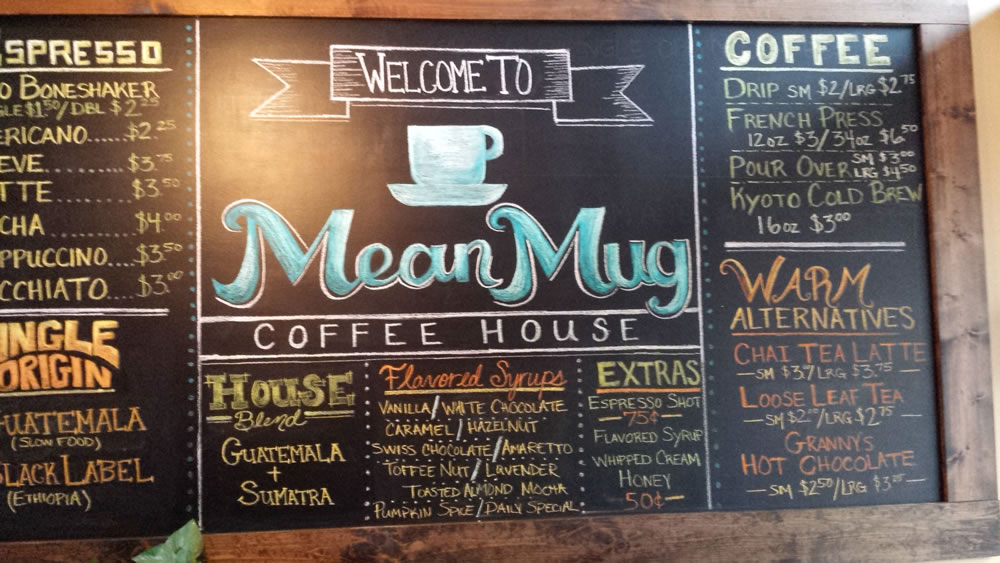 SPRESSO
O BONESHAKER
GLE $1.50/DBL $2.25
ERICANO......$2.25
EVE..........$3.75
TTE..........$3.50
CHA..........$4.00
PPUCCINO....$3.50
CCHIATO....$3.00
INGLE
ORIGIN
GUATEMALA
(SLOW FOOD)
BLACK LABEL
(ETHIOPIA)
WELCOME TO
Mean Mug
COFFEE HOUSE
HOUSE
Blend
GUATEMALA
+
SUMATRA
Flavored Syrups
VANILLA/WHITE CHOCOLATE
CARAMEL/HAZELNUT
SWISS CHOCOLATE/AMARETTO
TOFFEE NUT/LAVENDER
TOASTED ALMOND MOCHA
PUMPKIN SPICE/DAILY SPECIAL
EXTRAS
ESPRESSO SHOT
75¢
FLAVORED SYRUP
WHIPPED CREAM
HONEY
50¢
COFFEE
DRIP SM $2/LRG $2.75
FRENCH PRESS
12oz $3/34oz $6.50
POUR OVER SM $3.00
LRG $4.50
KYOTO COLD BREW
16oz $3.00
WARM
ALTERNATIVES
CHAI TEA LATTE
SM $3/LRG $3.75
LOOSE LEAF TEA
SM $2.00/LRG $2.75
GRANNY'S
HOT CHOCOLATE
SM $2.50/LRG $3.25